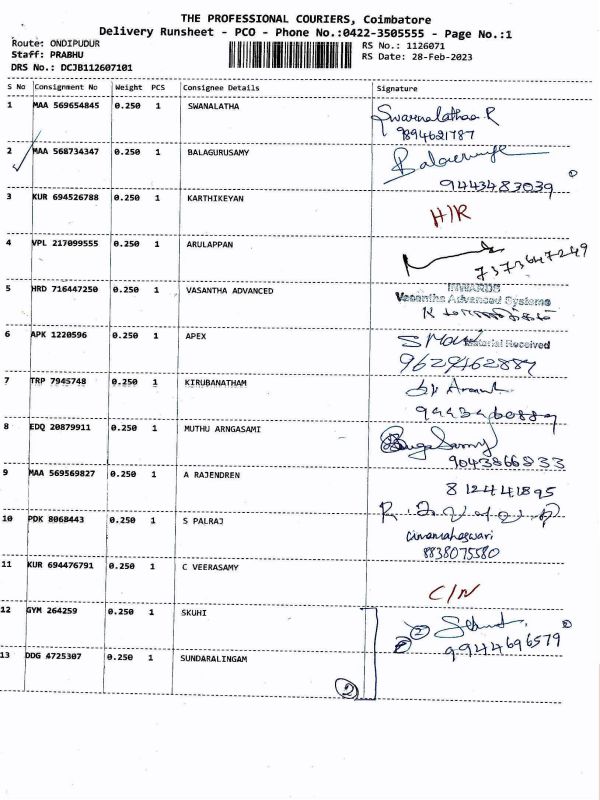 THE PROFESSIONAL COURIERS, Coimbatore
Delivery Runsheet - PCO - Phone No.:0422-3505555 - Page No.:1
Route: ONDIPUDUR RS No.: 1126071
Staff: PRABHU RS Date: 28-Feb-2023
DRS No.: DCJB112607101
S No Consignment No Weight PCS Consignee Details Signature
1 MAA 569654845 0.250 1 SWANALATHA Swarnalathaa R
9894621787
2 MAA 568734347 0.250 1 BALAGURUSAMY
9443483039
3 KUR 694526788 0.250 1 KARTHIKEYAN H/R
4 VPL 217099555 0.250 1 ARULAPPAN
7373647249
5 HRD 716447250 0.250 1 VASANTHA ADVANCED INWARDS
Vasantha Advanced Systems
6 APK 1220596 0.250 1 APEX Material Received
9629462887
7 TRP 7945748 0.250 1 KIRUBANATHAM
8 EDQ 20879911 0.250 1 MUTHU ARNGASAMI
9043866833
9 MAA 569569827 0.250 1 A RAJENDREN 812441895
10 PDK 8068443 0.250 1 S PALRAJ
Umamaheswari
8838075580
11 KUR 694476791 0.250 1 C VEERASAMY C/N
12 GYM 264259 0.250 1 SKUHI
9944696579
13 DDG 4725307 0.250 1 SUNDARALINGAM
2